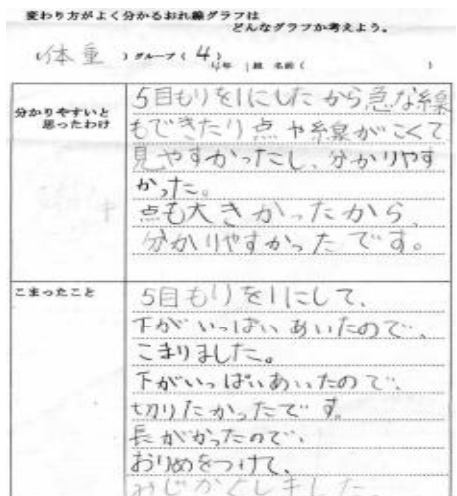 変わり方がよく分かるおれ線グラフは
どんなグラフか考えよう。
(体重)グループ(4)
4年 1組 名前( )
分かりやすいと
思ったわけ
5目もりを1にしたから急な線
もできたり点や線がこくて
見やすかったし、分かりやす
かった。
点も大きかったから、
分かりやすかったです。
こまったこと
5目もりを1にして、
下がいっぱいあいたので、
こまりました。
下がいっぱいあいたので、
切りたかったです。
長がかったので、
おりめをつけて、
みじかくしました